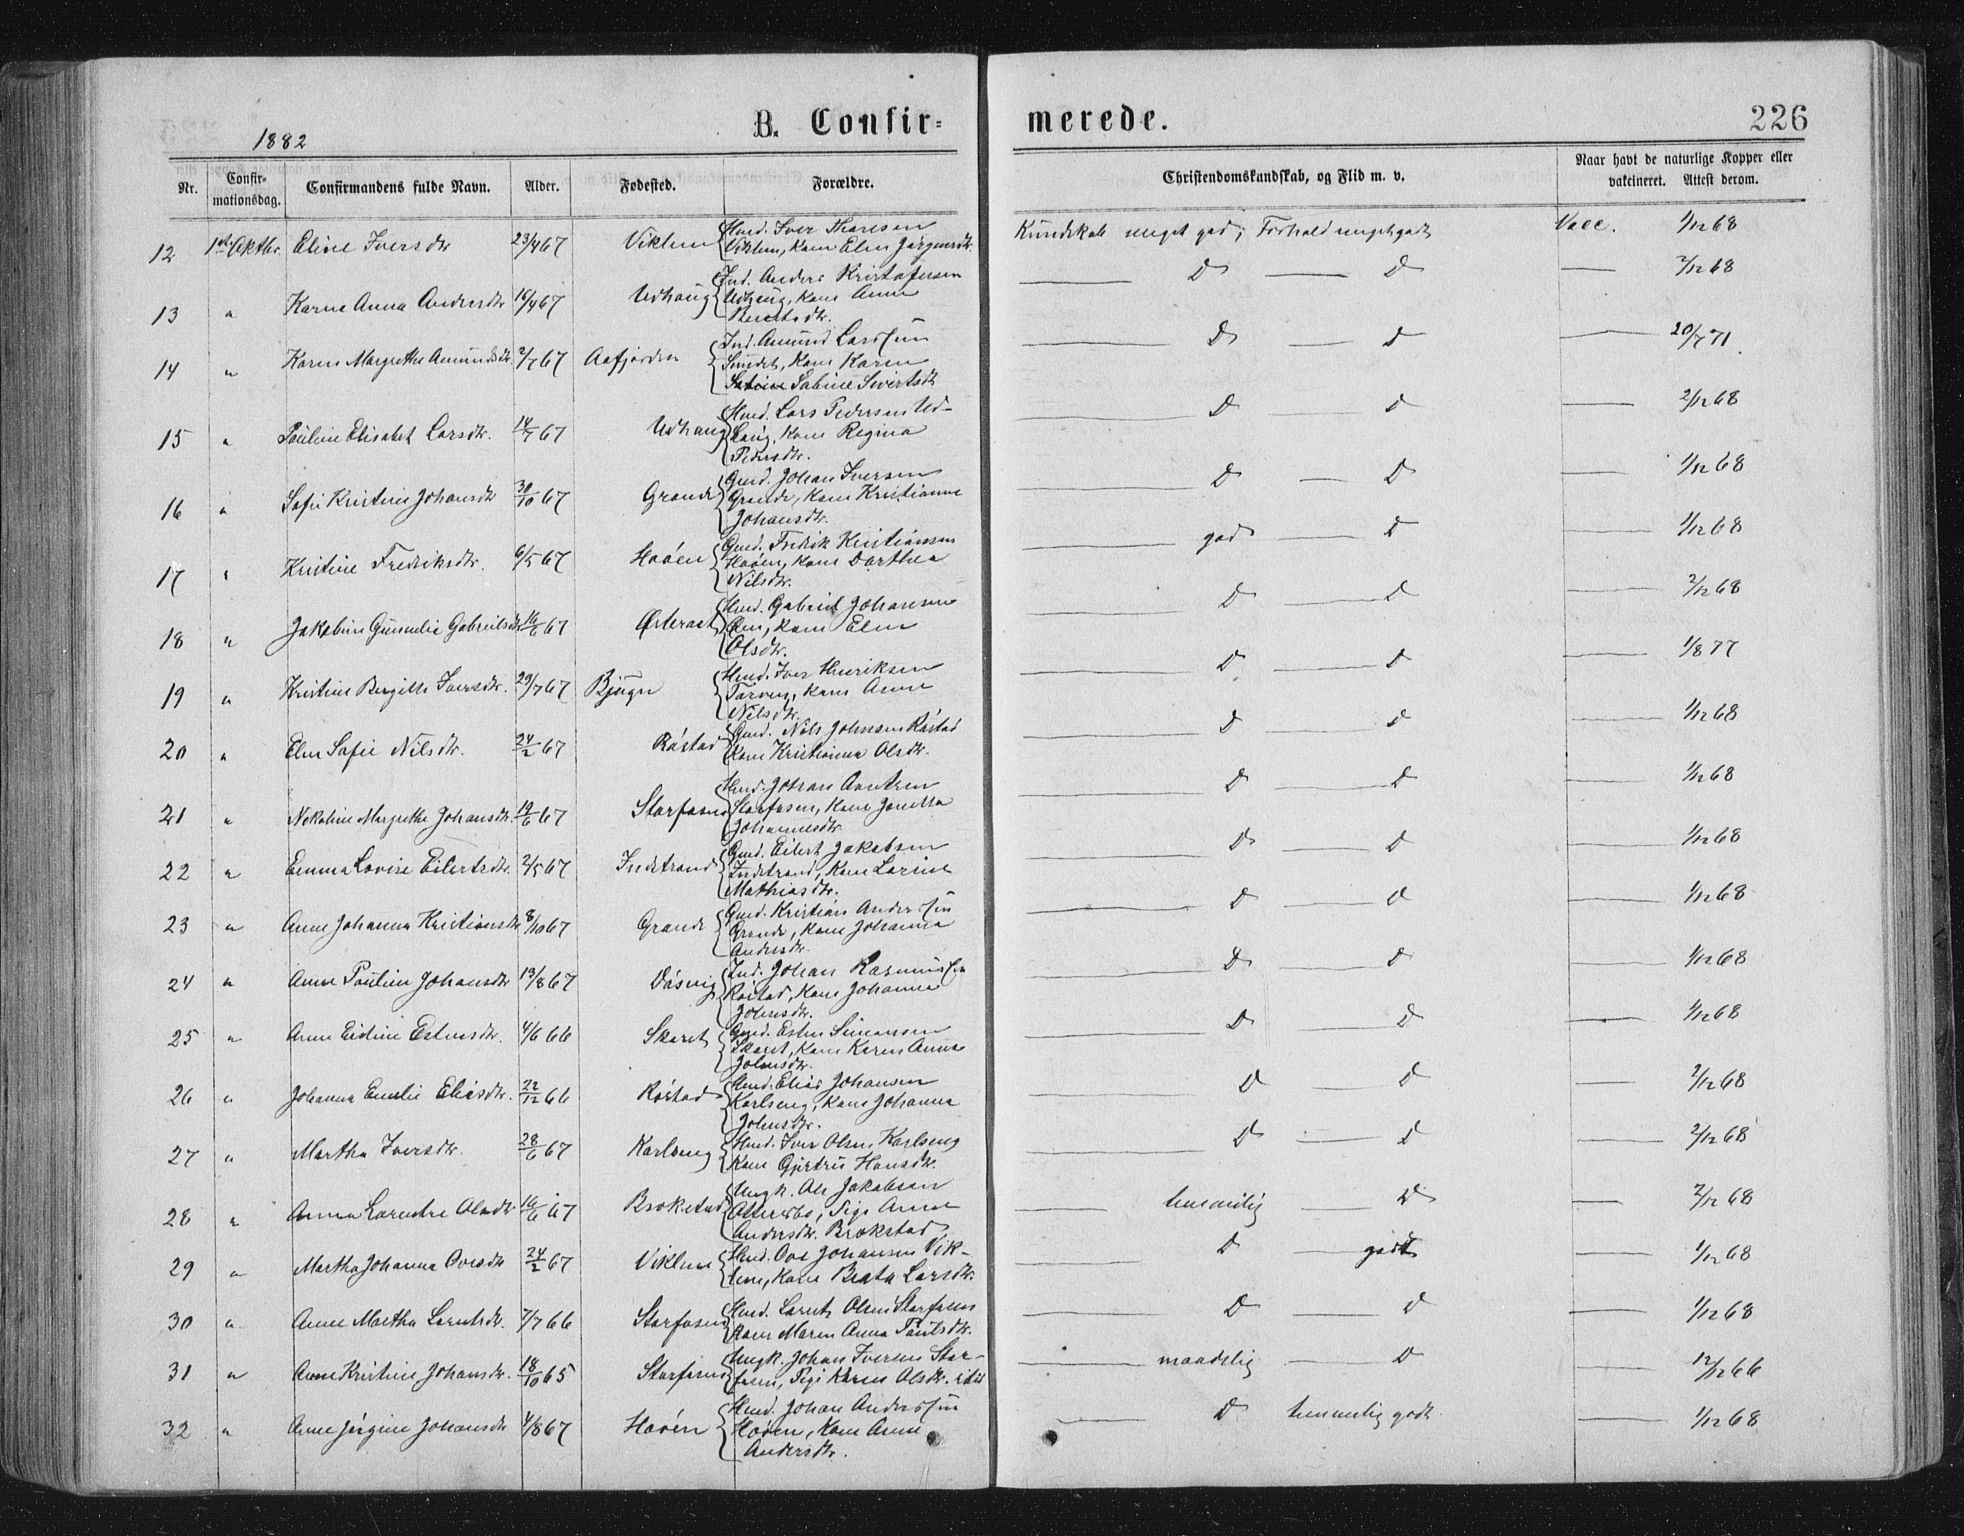 1882
B. Confir=
merede.
226
Nr.
Confir-
mationsdag.
Confirmandens fulde Navn.
Alder.
Fødested.
Forældre.
Christendomskundskab, og Flid m. v.
Naar havt de naturlige Kopper eller
vakcineret. Attest derom.
12 1ste Oktbr. Eline Iversdtr 23/4 67 Viklem Hmd. Iver
Viklem, Kone Elen Jørgensdtr.
Kundskab meget god; Forhold meget godt Vacc. 1/12 68
13 " Karne Anna Andersdtr 16/4 67 Udhaug Ind. Anders Kristofersen
Udhaug, Kone Anne
Berntsdtr.
D D 2/12 68
14 " Karen Margrethe Amundsdtr 2/7 67 Aafjorden Ind. Amund Larssen
Sundet, Kone Karen
Sabine Sivertsdtr
D D 20/7 71.
15 " Pauline Elisabet Larsdtr. 14/7 67 Udhaug Hmd. Lars Pedersen Ud-
haug, Kone Regina
Pedersdtr.
D D 2/12 68
16 " Sofie Kristine Johansdtr 30/10 67 Grande Gmd. Johan Iversen
Grande, Kone Kristianne
Johansdtr.
D D 1/12 68
17 " Kristine Fredriksdtr. 6/5 67 Hoøen Gmd. Fredrik Kristiansen
Hoøen, Kone Dorthea
Nilsdtr.
god D 1/12 68
18 " Jakobine Gunnelie Gabrielsdtr 16/6 67 Østeraat Hmd. Gabriel Johansen
Øen, Kone Elen
Olsdtr.
D D 2/12 68
19 " Kristine Bergitte Iversdtr. 29/7 67 Bjugn Hmd. Iver Henriksen
Tarven, Kone Anne
Nilsdtr.
D D 1/8 77
20 " Elen Sofie Nilsdtr. 24/2 67 Røstad Gmd. Nils Johnsen Røstad
Kone Kristianna Olsdtr.
D D 1/12 68
21 " Nekoline Margrethe Johansdtr. 19/6 67 Storfosen Hmd. Johan
Storfosen, Kone Jonetta
Johannesdtr.
D D 1/12 68
22 " Emma Lovise Eilertsdtr. 2/5 67 Indstrand Gmd. Eilert Jakobsen
Indstrand, Kone Larine
Mathiasdtr.
D D 1/12 68
23 " Anne Johanna Kristiansdtr 8/10 67 Grande Gmd. Kristian Anderssen
Grande, Kone Johanna
Andersdtr.
D D 1/12 68
24 " Anne Pauline Johansdtr 13/8 67 Døsvig Ind. Johan Rasmussen
Røstad, Kone Johanna
Johnsdtr.
D D 1/12 68
25 " Anne Eidine Estensdtr. 4/6 66 Skaret Gmd. Esten Simonsen
Skaret, Kone Karen Anna
Johnsdtr.
D D 1/12 68
26 " Johanna Emelie Eliasdtr. 22/12 66 Røstad Hmd. Elias Johansen
Karlseng, Kone Johanna
Johnsdtr.
D D 2/12 68
27 " Martha Iversdtr. 28/6 67 Karlseng Hmd. Iver Olsen Karlseng
Kone Gjertru Hansdtr.
D D 2/12 68
28 " Anna Larentse Olsdtr 16/6 67 Brokstad Ungk. Ole Jakobsen
Pige Anne
Andersdtr. Brokstad
temmelig D 2/12 68
29 " Martha Johanna Ovesdtr 24/2 67 Viklem Hmd. Ove Johansen Vik-
lem, Kone Beata Larsdtr.
D godt 1/12 68
30 " Anne Martha Lorntsdtr. 7/7 66 Storfosen Hmd. Lornts Olsen Storfosen
Kone Maren Anna Paulsdtr.
D D 1/12 68
31 " Anne Kristine Johansdtr. 18/10 65 Storfosen Ungk. Johan Iversen Stor-
fosen, Pige Karen Olsdtr.
maadelig D 12/12 66
32 " Anne Jørgine Johansdtr 4/8 67 Hoøen Hmd. Johan Anderssen
Hoøen, Kone Anne
Andersdtr.
D temmelig godt 1/12 68